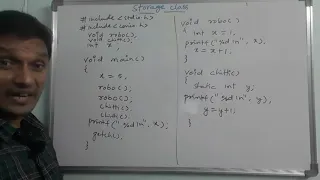 Storage class
# include <stdio.h>
# include <conio.h>
void robo();
void chitti();
int x;
void main()
{
x = 5;
robo();
robo();
chitti();
chitti();
printf("%d\n", x);
getch();
}
void robo()
{ int x = 1;
printf("%d\n", x);
x = x+1;
}
void chitti()
{
static int y;
printf("%d\n", y);
y = y+1;
}